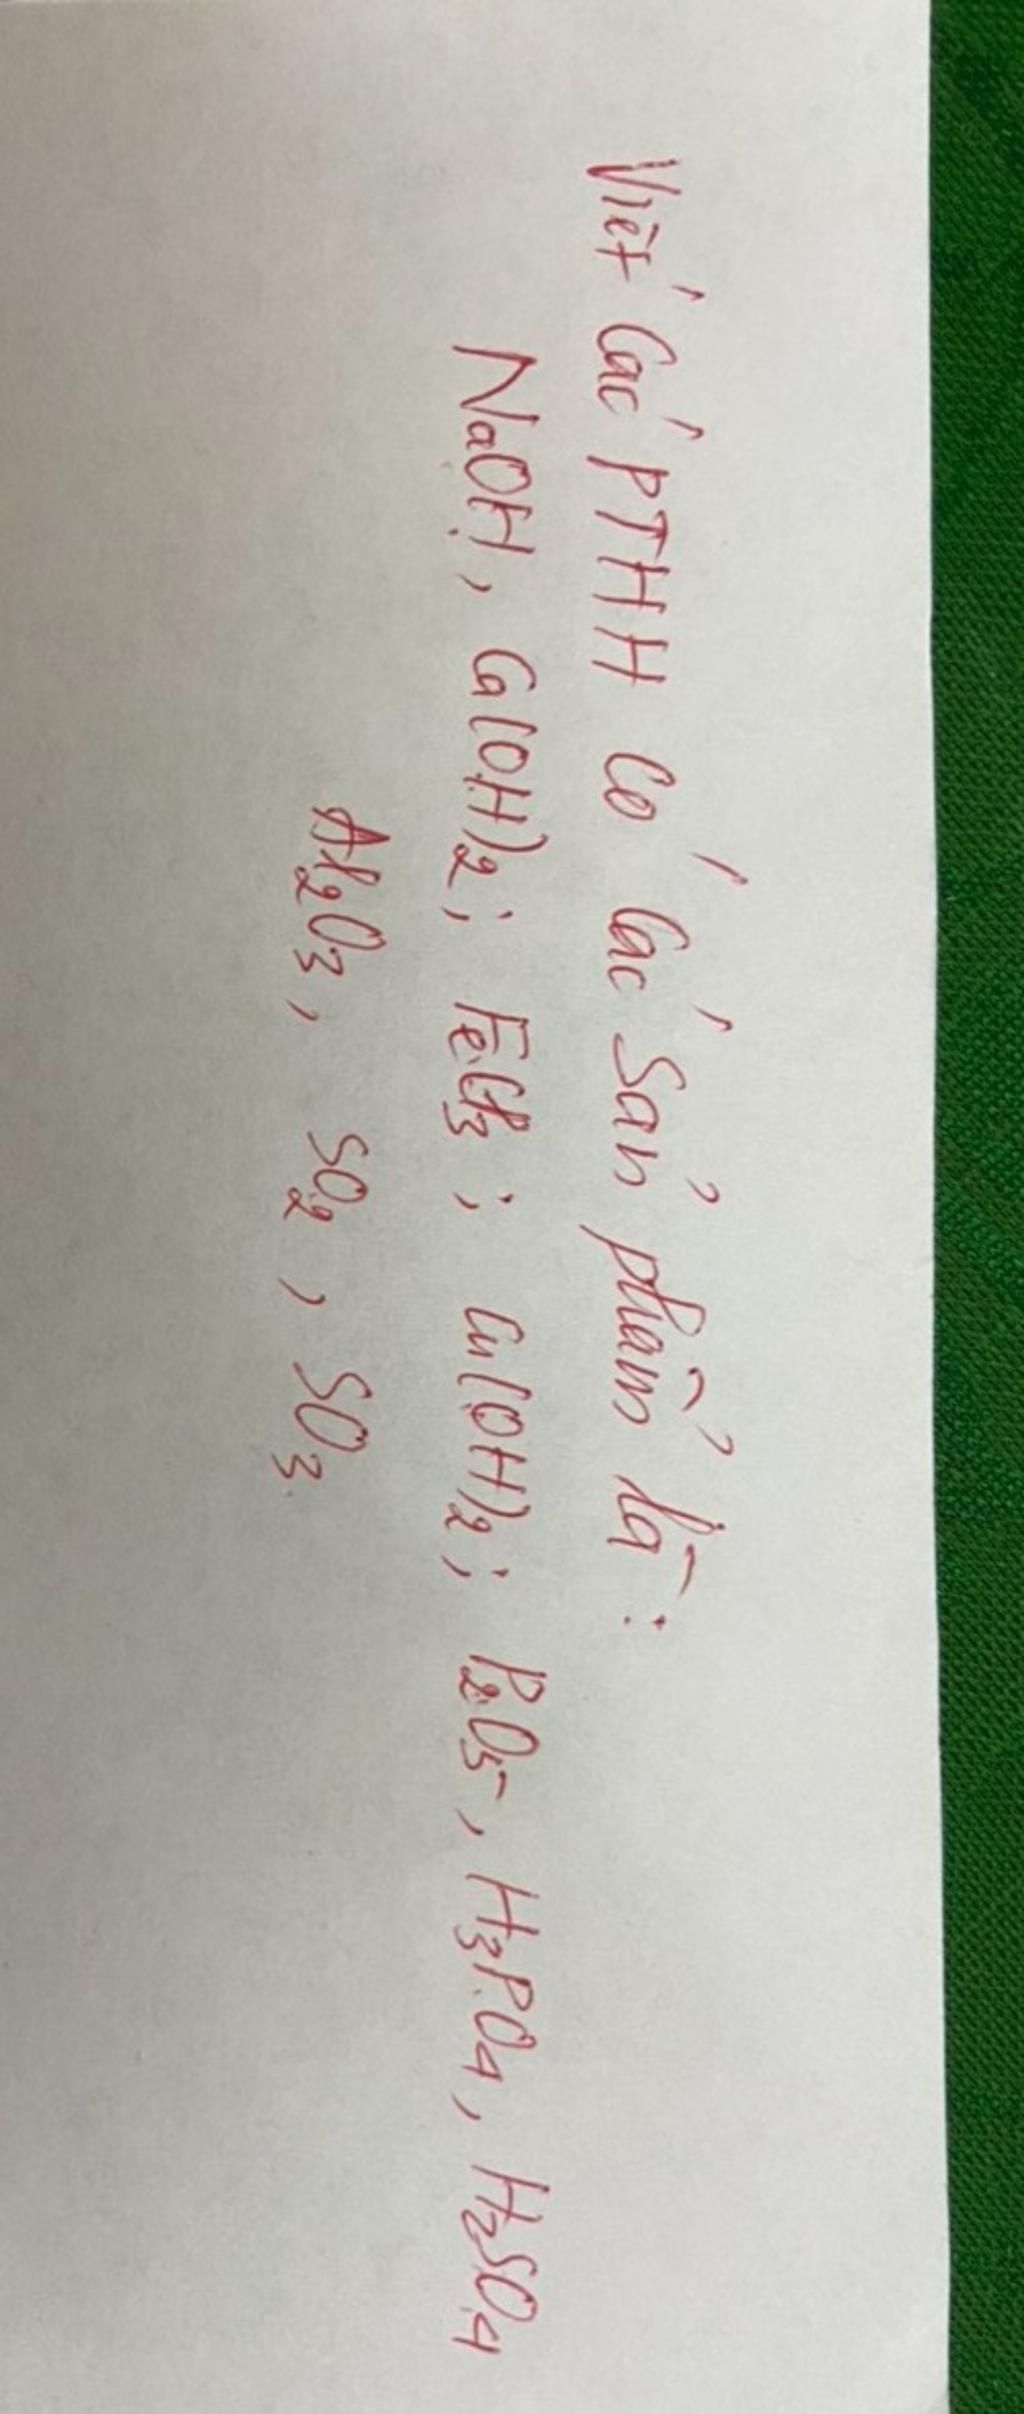 Viết các PTHH có các sản phẩm là:
NaOH, Ca(OH)2; FeCl3; Cu(OH)2; P2O5, H3PO4, H2SO4
Al2O3, SO2, SO3.